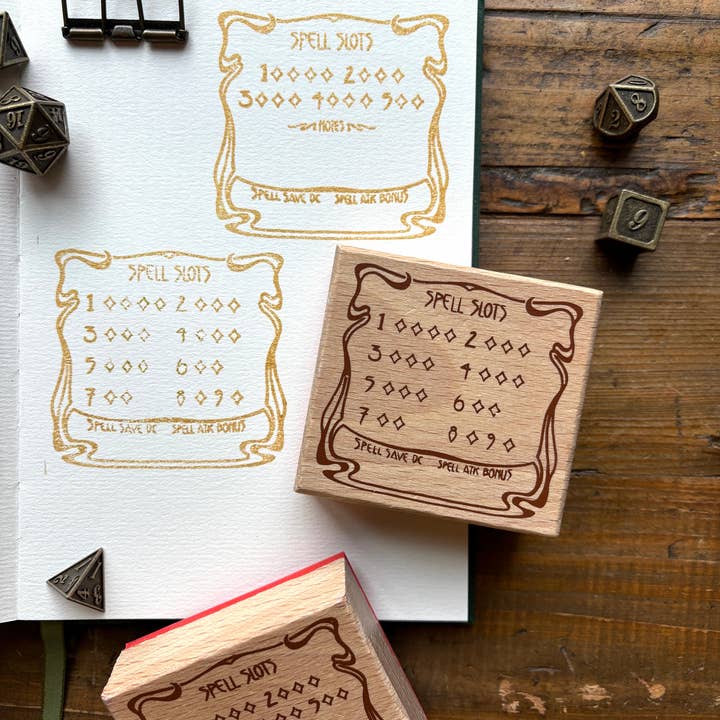 SPELL SLOTS
1◇◇◇◇ 2◇◇◇
3◇◇◇ 4◇◇◇ 5◇◇
NOTES
SPELL SAVE DC SPELL ATK BONUS
SPELL SLOTS
1 ◇◇◇◇ 2 ◇◇◇
3 ◇◇◇ 4 ◇◇◇
5 ◇◇◇ 6 ◇◇
7 ◇◇ 8 ◇ 9 ◇
SPELL SAVE DC SPELL ATK BONUS
SPELL SLOTS
1 ◇◇◇◇ 2 ◇◇◇
3 ◇◇◇ 4 ◇◇◇
5 ◇◇◇ 6 ◇◇
7 ◇◇ 8 ◇ 9 ◇
SPELL SAVE DC SPELL ATK BONUS
SPELL SLOTS
2◇◇◇
5◇◇
16
9
8
2
9